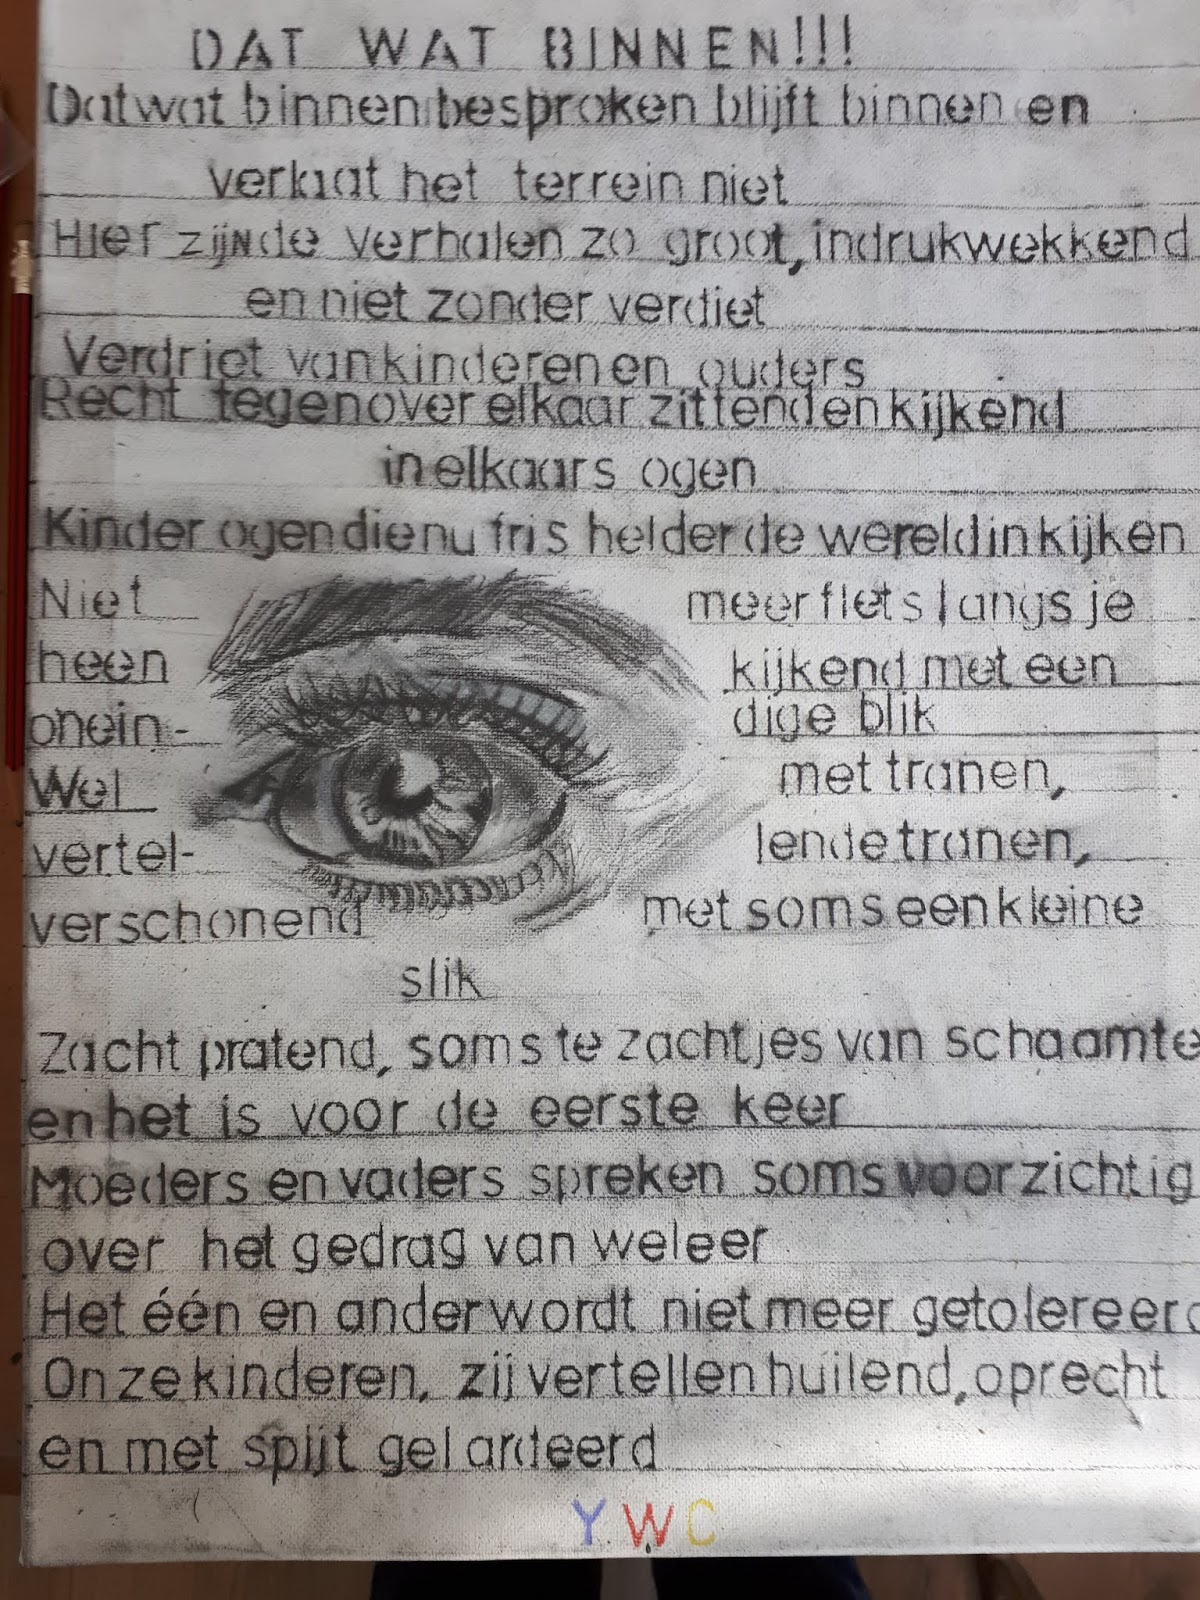 DAT WAT BINNEN!!!
Dat wat binnen besproken blijft binnen en
verlaat het terrein niet
Hier zijn de verhalen zo groot, indrukwekkend
en niet zonder verdiet
Verdriet van kinderen en ouders
Recht tegenover elkaar zittend en kijkend
in elkaars ogen
Kinder ogen die nu fris helder de wereld in kijken
Niet meer fiets langs je
heen kijkend met een
onein- dige blik
Wel met tranen,
vertel- lende tranen,
verschonend met soms een kleine
slik
Zacht pratend, soms te zachtjes van schaamte
en het is voor de eerste keer
Moeders en vaders spreken soms voorzichtig
over het gedrag van weleer
Het één en ander wordt niet meer getolereerd
Onze kinderen, zij vertellen huilend, oprecht
en met spijt gelardeerd
YWC